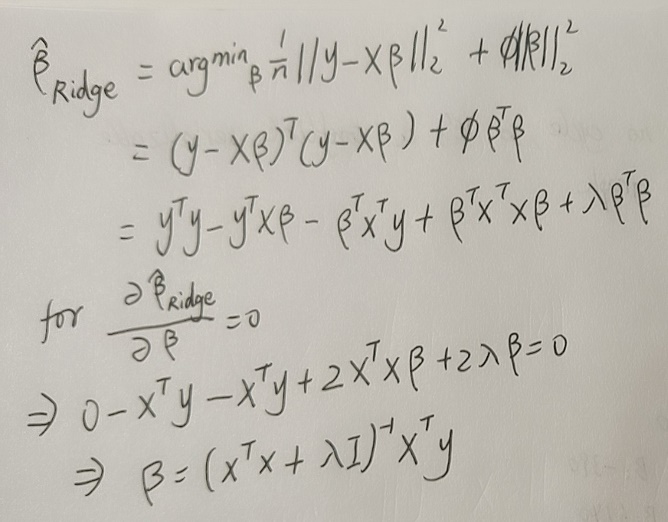 β̂_Ridge = argmin_β 1/n ||y-Xβ||₂² + ϕ||β||₂²
= (y-Xβ)ᵀ(y-Xβ) + ϕβᵀβ
= yᵀy - yᵀXβ - βᵀXᵀy + βᵀXᵀXβ + λβᵀβ
for ∂β̂_Ridge/∂β = 0
⇒ 0 - Xᵀy - Xᵀy + 2XᵀXβ + 2λβ = 0
⇒ β = (XᵀX + λI)⁻¹Xᵀy